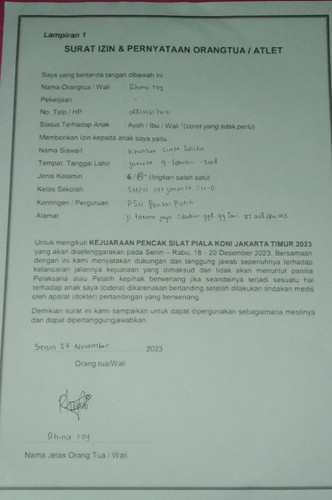 Lampiran 1
SURAT IZIN & PERNYATAAN ORANGTUA / ATLET
Saya yang bertanda tangan dibawah ini :
Nama Orangtua / Wali : Rhina roy
Pekerjaan : -
No. Telp / HP :
Status Terhadap Anak : Ayah / Ibu / Wali *(coret yang tidak perlu)
Memberikan Izin kepada anak saya yaitu :
Nama Siswa/i : Cinta
Tempat, Tanggal Lahir : Jakarta 9 - Februari - 2008
Jenis Kelamin : L / P* (lingkari salah satu)
Kelas Sekolah : SMPN Jakarta
Kontingen / Perguruan : PSN Perisai Putih
Alamat : Jl taruna jaya Cibubur
Untuk mengikuti KEJUARAAN PENCAK SILAT PIALA KONI JAKARTA TIMUR 2023
yang akan diselenggarakan pada Senin – Rabu, 18 - 20 Desember 2023. Bersamaan
dengan ini kami menyatakan dukungan dan tanggung jawab sepenuhnya terhadap
kelancaran jalannya kejuaraan yang dimaksud dan tidak akan menuntut panitia
Pelaksana atau Pelatih kapanpun berwenang jika seandainya terjadi sesuatu hal
terhadap anak saya (cidera) dikarenakan bertanding setelah dilakukan tindakan medis
oleh aparat (dokter) pertandingan yang berwenang.
Demikian surat ini kami sampaikan untuk dapat dipergunakan sebagaimana mestinya
dan dapat dipertanggungjawabkan.
Senin 27 November 2023
Orang tua/Wali
Rhina roy
Nama Jelas Orang Tua / Wali